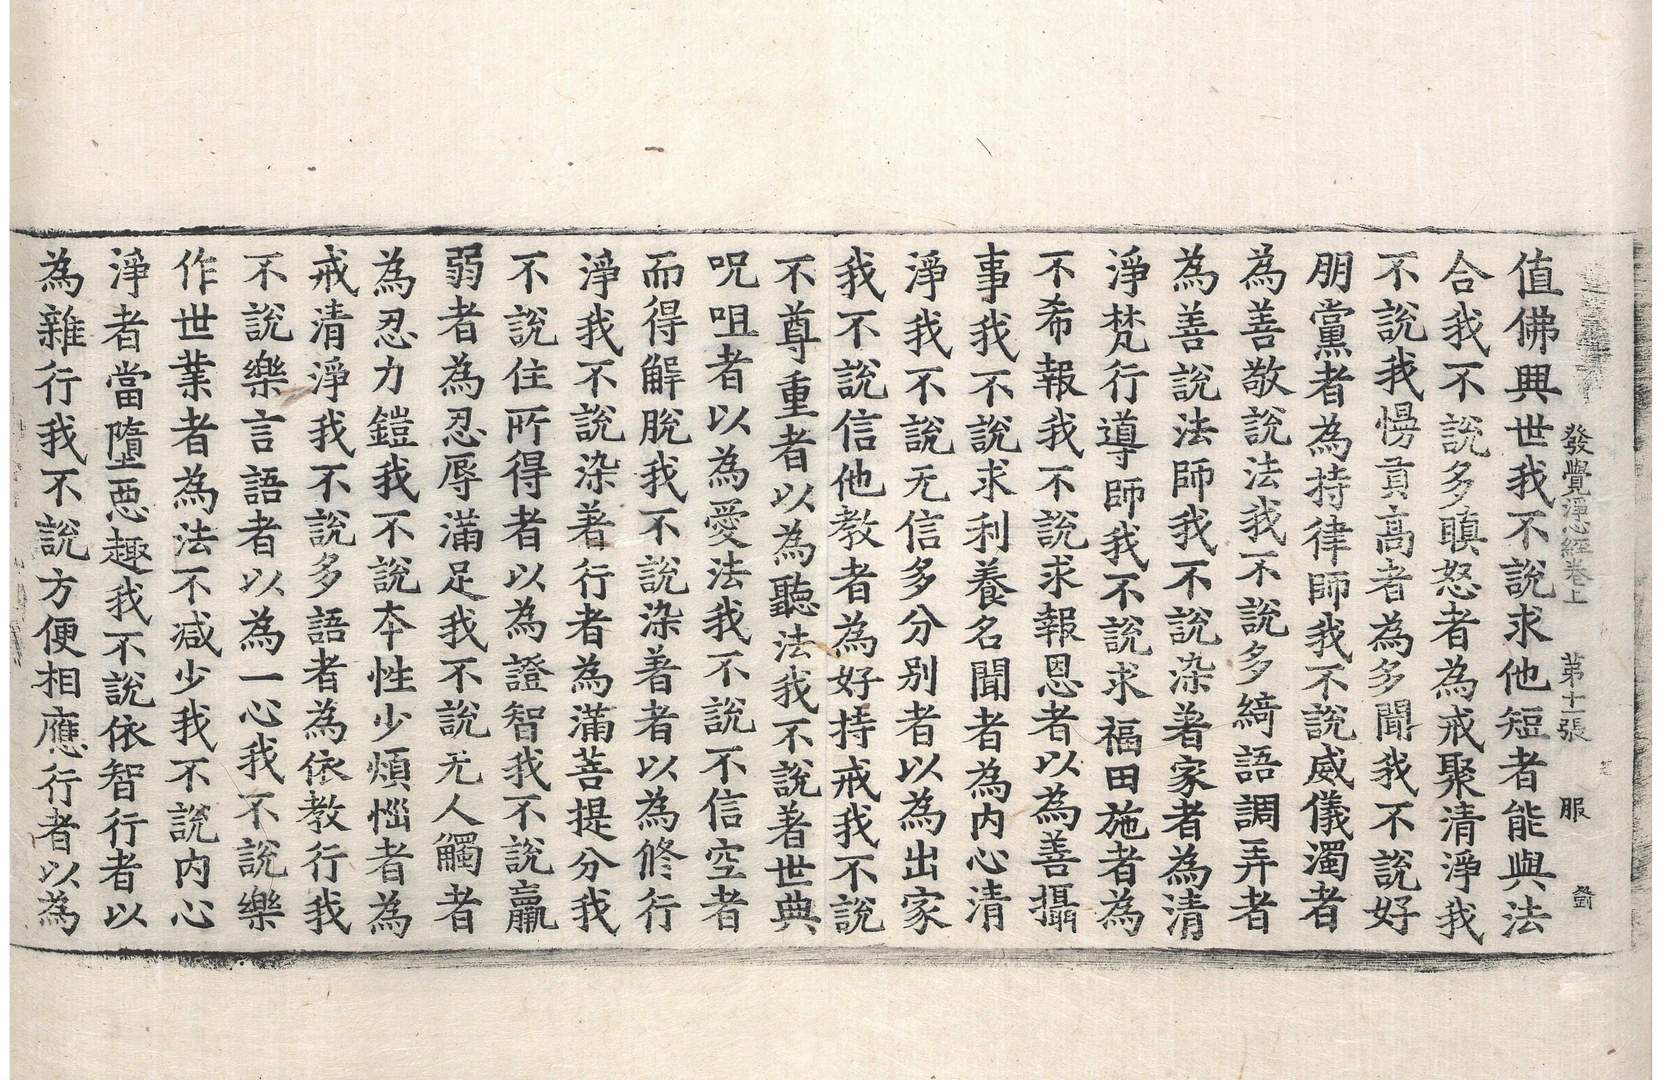 發覺淨心經卷上 第十一張 服
值佛興世我不說求他短者能與法
合我不說多瞋怒者為戒聚清淨我
不說我慢貢高者為多聞我不說好
朋黨者為持律師我不說威儀濁者
為善敬說法我不說多綺語調弄者
為善說法師我不說染著家者為清
淨梵行導師我不說求福田施者為
不希報我不說求報恩者以為善攝
事我不說求利養名聞者為內心清
淨我不說无信多分別者以為出家
我不說信他教者為好持戒我不說
不尊重者以為聽法我不說著世典
呪咀者以為愛法我不說不信空者
而得解脫我不說染著者以為修行
淨我不說染著行者為滿菩提分我
不說住所得者以為證智我不說羸
弱者為忍辱滿足我不說无人觸者
為忍力鎧我不說本性少煩惱者為
戒清淨我不說多語者為依教行我
不說樂言語者以為一心我不說樂
作世業者為法不減少我不說內心
淨者當墮惡趣我不說依智行者以
為雜行我不說方便相應行者以為